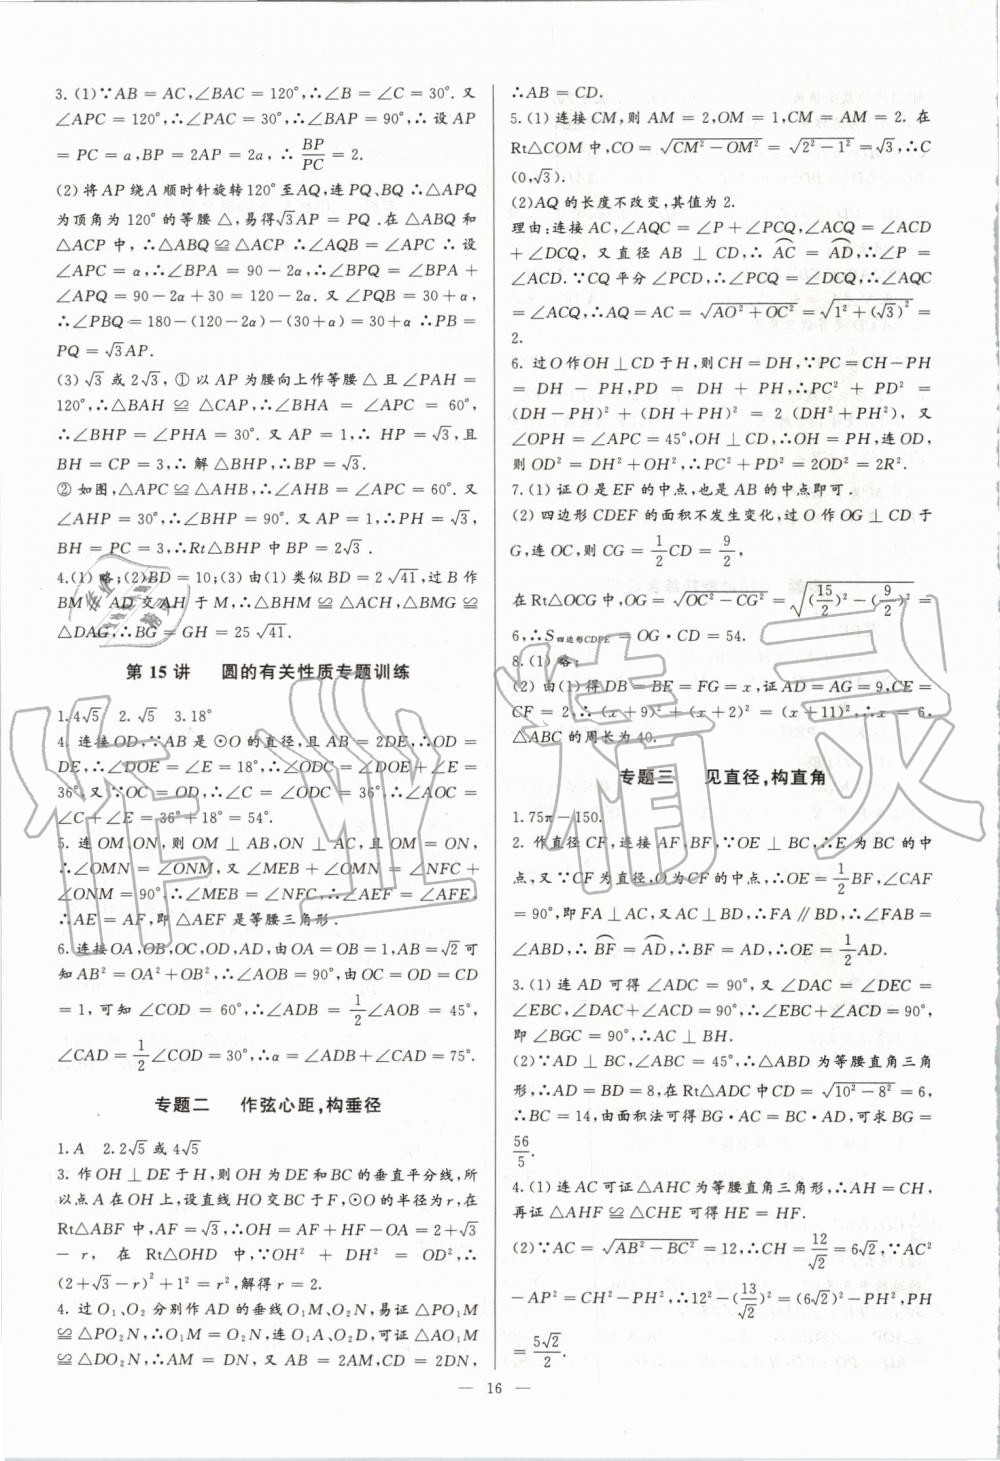 3. (1)∵AB=AC,∠BAC=120°,∴∠B=∠C=30°. 又
∠APC=120°,∴∠PAC=30°,∴∠BAP=90°,∴ 设 AP
=PC=a,BP=2AP=2a,∴ BP/PC=2.
(2) 将 AP 绕 A 顺时针旋转 120°至 AQ,连 PQ、BQ ∴△APQ
为顶角为 120°的等腰 △,易得√3AP=PQ. 在 △ABQ 和
△ACP 中,∴△ABQ ≌ △ACP ∴∠AQB=∠APC ∴ 设
∠APC=α,∴∠BPA=90-2α,∴∠BPQ=∠BPA+
∠APQ=90-2α+30=120-2α. 又 ∠PQB=30+α,
∴∠PBQ=180-(120-2α)-(30+α)=30+α ∴PB=
PQ=√3AP.
(3) √3 或 2√3,① 以 AP 为腰向上作等腰 △ 且 ∠PAH=
120°,∴△BAH ≌ △CAP,∴∠BHA=∠APC=60°,
∴∠BHP=∠PHA=30°. 又 AP=1,∴ HP=√3,且
BH=CP=3,∴ 解 △BHP,∴BP=√3.
② 如图,△APC ≌ △AHB,∴∠AHB=∠APC=60°. 又
∠AHP=30°,∴∠BHP=90°. 又 AP=1,∴PH=√3,
BH=PC=3,∴Rt△BHP 中 BP=2√3.
4.(1) 略;(2)BD=10;(3) 由(1) 类似 BD=2√41,过 B 作
BM AD 交 AH 于 M,∴△BHM ≌ △ACH,△BMG ≌
△DAG,∴BG=GH=25√41.
第 15 讲 圆的有关性质专题训练
1.4√5 2.√5 3.18°
4. 连接 OD,∵AB 是 ⊙O 的直径,且 AB=2DE,∴OD=
DE,∴∠DOE=∠E=18°,∴∠ODC=∠DOE+∠E=
36°. 又 ∵OC=OD,∴∠C=∠ODC=36°,∴∠AOC=
∠C+∠E=36°+18°=54°.
5. 连 OM、ON, 则 OM ⊥ AB,ON ⊥ AC, 且 OM=ON,
∴∠OMN=∠ONM, 又 ∠MEB+∠OMN=∠NFC+
∠ONM=90°,∴∠MEB=∠NFC,∴∠AEF=∠AFE,
∴AE=AF,即 △AEF 是等腰三角形.
6. 连接 OA,OB,OC,OD,AD,由 OA=OB=1,AB=√2 可
知 AB²=OA²+OB²,∴∠AOB=90°,由 OC=OD=CD
=1,可知 ∠COD=60°,∴∠ADB=1/2∠AOB=45°,
∠CAD=1/2∠COD=30°,∴α=∠ADB+∠CAD=75°.
专题二 作弦心距,构垂径
1.A 2.2√5 或 4√5
3. 作 OH ⊥ DE 于 H,则 OH 为 DE 和 BC 的垂直平分线,所
以点 A 在 OH 上,设直线 HO 交 BC 于 F,⊙O 的半径为 r,在
Rt△ABF 中,AF=√3,∴OH=AF+HF-OA=2+√3
-r, 在 Rt△OHD 中,∵OH²+DH²=OD²,∴
(2+√3-r)²+1²=r²,解得 r=2.
4. 过 O₁、O₂ 分别作 AD 的垂线 O₁M、O₂N,易证 △PO₁M
≌ △PO₂N,∴O₁M=O₂N,连 O₁A、O₂D,可证 △AO₁M
≌ △DO₂N,∴AM=DN,又 AB=2AM,CD=2DN,
∴AB=CD.
5.(1) 连接 CM,则 AM=2,OM=1,CM=AM=2. 在
Rt△COM 中,CO=√(CM²-OM²)=√(2²-1²)=√3,∴C
(0,√3).
(2)AQ 的长度不改变,其值为 2.
理由:连接 AC,∠AQC=∠P+∠PCQ,∠ACQ=∠ACD
+∠DCQ, 又直径 AB ⊥ CD,∴ AC⌒=AD⌒,∴∠P=
∠ACD. ∵CQ 平分 ∠PCD,∴∠PCQ=∠DCQ,∴∠AQC
=∠ACQ,∴AQ=AC=√(AO²+OC²)=√(1²+(√3)²)=
2.
6. 过 O 作 OH ⊥ CD 于 H,则 CH=DH,∵PC=CH-PH
=DH-PH,PD=DH+PH,∴PC²+PD²=
(DH-PH)²+(DH+PH)²=2(DH²+PH²), 又
∠OPH=∠APC=45°,OH ⊥ CD,∴OH=PH,连 OD,
则 OD²=DH²+OH²,∴PC²+PD²=2OD²=2R².
7.(1) 证 O 是 EF 的中点,也是 AB 的中点即可.
(2) 四边形 CDEF 的面积不发生变化,过 O 作 OG ⊥ CD 于
G,连 OC,则 CG=1/2CD=9/2,
在 Rt△OCG 中,OG=√(OC²-CG²)=√((15/2)²-(9/2)²)=
6,∴S四边形CDPE=OG·CD=54.
8.(1) 略;
(2) 由(1) 得 DB=BE=FG=x,证 AD=AG=9,CE=
CF=2,∴(x+9)²+(x+2)²=(x+11)²,∴x=6,
△ABC 的周长为 40.
专题三 见直径,构直角
1.75π-150.
2. 作直径 CF,连接 AF、BF,∵OE ⊥ BC,∴E 为 BC 的中
点,又 ∵CF 为直径,O 为 CF 的中点,∴OE=1/2BF,∠CAF
=90°,即 FA ⊥ AC,又 AC ⊥ BD,∴FA∥BD,∴∠FAB=
∠ABD,∴ BF⌒=AD⌒,∴BF=AD,∴OE=1/2AD.
3.(1) 连 AD 可得 ∠ADC=90°,又 ∠DAC=∠DEC=
∠EBC,∠DAC+∠ACD=90°,∴∠EBC+∠ACD=90°,
即 ∠BGC=90°,∴AC ⊥ BH.
(2)∵AD ⊥ BC,∠ABC=45°,∴△ABD 为等腰直角三角
形,∴AD=BD=8,在 Rt△ADC 中 CD=√(10²-8²)=6,
∴BC=14,由面积法可得 BG·AC=BC·AD,可求 BG=
56/5.
4.(1) 连 AC 可证 △AHC 为等腰直角三角形,∴AH=CH,
再证 △AHF ≌ △CHE 可得 HE=HF.
(2)∵AC=√(AB²-BC²)=12,∴CH=12/√2=6√2,∵AC²
-AP²=CH²-PH²,∴12²-(13/√2)²=(6√2)²-PH²,PH
=5√2/2.
— 16 —
作业精灵